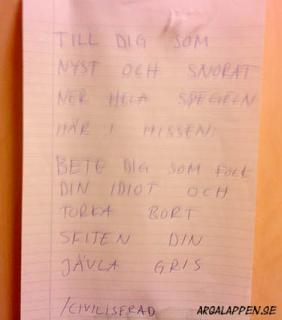 TILL DIG SOM
NYST OCH SNORAT
NER HELA SPEGELN
HÄR I HISSEN!
BETE DIG SOM FOLK
DIN IDIOT OCH
TORKA BORT
SKITEN DIN
JÄVLA GRIS
/CIVILISERAD
ARGALAPPEN.SE